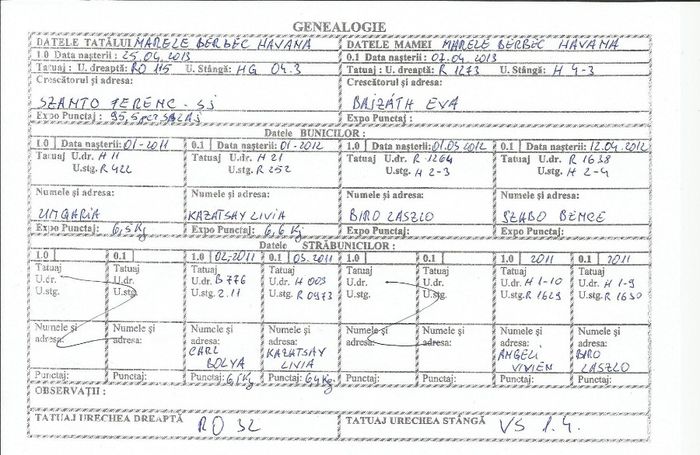 GENEALOGIE
DATELE TATĂLUI MARELE BERBEC HAVANA DATELE MAMEI MARELE BERBEC HAVANA
1.0 Data nașterii: 25.04.2013 0.1 Data nașterii: 07.04.2013
Tatuaj : U. dreaptă: RO 115 U. Stângă: HG 04.3 Tatuaj : U. dreaptă: R 1273 U. Stângă: H 4-3
Crescătorul și adresa: Crescătorul și adresa:
SZANTO FERENC - SJ BAJZÁTH EVA
Expo Punctaj : 95,5 pct SALAJ Expo Punctaj :
Datele BUNICILOR :
1.0 Data nașterii: 01-2011 0.1 Data nașterii: 01-2012 1.0 Data nașterii: 01.05 2012 0.1 Data nașterii: 12.04.2012
Tatuaj U.dr. H 11 Tatuaj U.dr. H 21 Tatuaj U.dr. R 1264 Tatuaj U.dr. R 1638
U.stg. R 422 U.stg. R 252 U.stg. H 2-3 U.stg. H 2-4
Numele și adresa: Numele și adresa: Numele și adresa: Numele și adresa:
UNGARIA KAZATSAY LIVIA BIRO LASZLO SZABO BENCE
Expo Punctaj : 6,5 Kg Expo Punctaj : 6,6 Kg Expo Punctaj: Expo Punctaj:
Datele STRĂBUNICILOR :
1.0 0.1 1.0 02-2011 0.1 05.2011 1.0 0.1 1.0 2011 0.1 2011
Tatuaj Tatuaj Tatuaj Tatuaj Tatuaj Tatuaj Tatuaj Tatuaj
U.dr. U.dr. U.dr. B 776 U.dr. H 003 U.dr. U.dr. U.dr. H 1-10 U.dr. H 1-9
U.stg. U.stg. U.stg. 2.11 U.stg. R 0973 U.stg. U.stg. U.stg. R 1629 U.stg. R 1630
Numele și adresa: Numele și adresa: Numele și adresa: Numele și adresa: Numele și adresa: Numele și adresa: Numele și adresa: Numele și adresa:
CARL KAZATSAY ANGELI BIRO
BOLYA LIVIA VIVIEN LASZLO
Punctaj: Punctaj: Punctaj: Punctaj: 6,4 Kg. Punctaj: Punctaj: Punctaj: Punctaj:
OBSERVAȚII :
TATUAJ URECHEA DREAPTĂ RO 32 TATUAJ URECHEA STÂNGĂ VS 1.4.